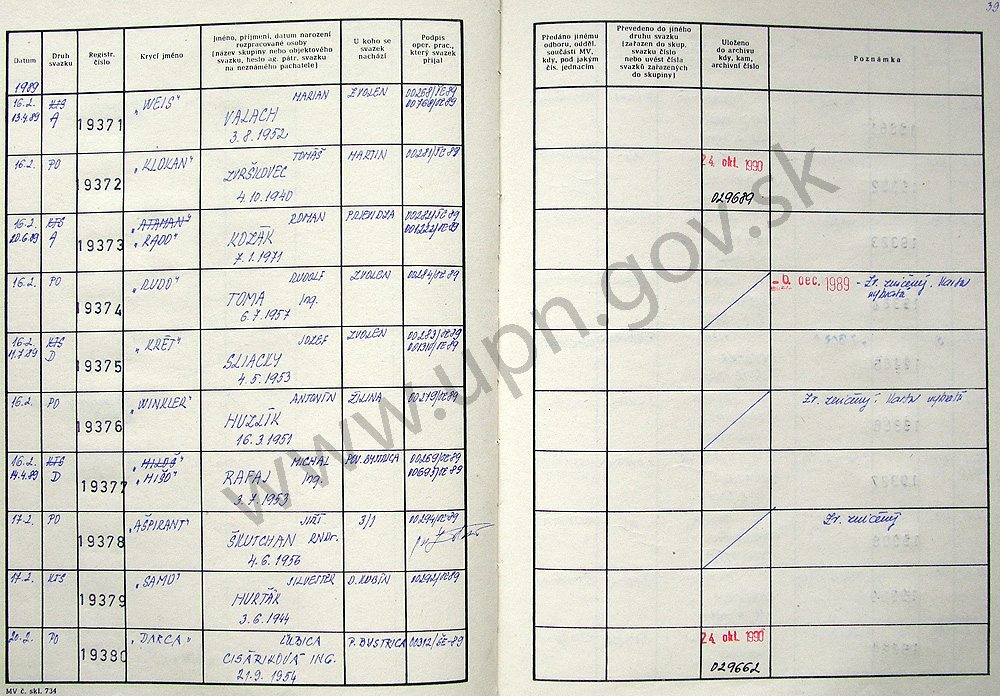 39
Datum
Druh svazku
Registr. číslo
Krycí jméno
Jméno, příjmení, datum narození rozpracované osoby (název skupiny nebo objektového svazku, heslo ag. pátr. svazku na neznámého pachatele)
U koho se svazek nachází
Podpis oper. prac., který svazek přijal
Předáno jinému odboru, odděl. součásti MV, kdy, pod jakým čís. jednacím
Převedeno do jiného druhu svazku (zařazen do skup. svazku číslo nebo uvést čísla svazků zařazených do skupiny)
Uloženo do archivu kdy, kam, archivní číslo
Poznámka
1989
16.2. KTS 19371 „WEIS" MARIAN ZVOLEN
13.4.89 A VALACH
3.8.1952
16.2. PO 19372 „KLOKAN" TOMÁŠ MARTIN 00281/ČE-89 24. okt. 1990
4.10.1940 029689
16.2. KTS 19373 „ATAMAN" ROMAN PRIEVIDZA
20.6.89 A „RADO" KOZÁK
7.1.1971
16.2. PO 19374 „RUDO" RUDOLF ZVOLEN 00284/ČE-89 dec. 1989 - Zv. zničený. Karta vybratá
TOMA Ing.
6.7.1957
16.2. KTS 19375 „KRËT" JOZEF ZVOLEN
11.7.89 D SLIACKY
4.5.1953
16.2. PO 19376 „WINKLER" ANTONÍN ŽILINA 00279/ČE-89 Zv. zničený. Karta vybratá
16.3.1951
16.2. KTS 19377 „MILOŠ" MICHAL POV. BYSTRICA 00269/ČE-89
14.4.89 D „MIŠO" RAFAJ Ing.
3.7.1953
17.2. PO 19378 „AŠPIRANT" JIŘÍ 3/1 00294/ČE-89 Zv. zničený
ŠKUTCHAN RNDr.
4.6.1956
17.2. KTS 19379 „SAMO" SILVESTER D. KUBÍN 00292/ČE-89
HURTÁK
3.6.1944
20.2. PO 19380 „DARCA" ĽUBICA P. BYSTRICA 00312/ČE-89 24. okt. 1990
CISÁRIKOVÁ ING. 029662
21.9.1954
MV č. skl. 734
www.upn.gov.sk